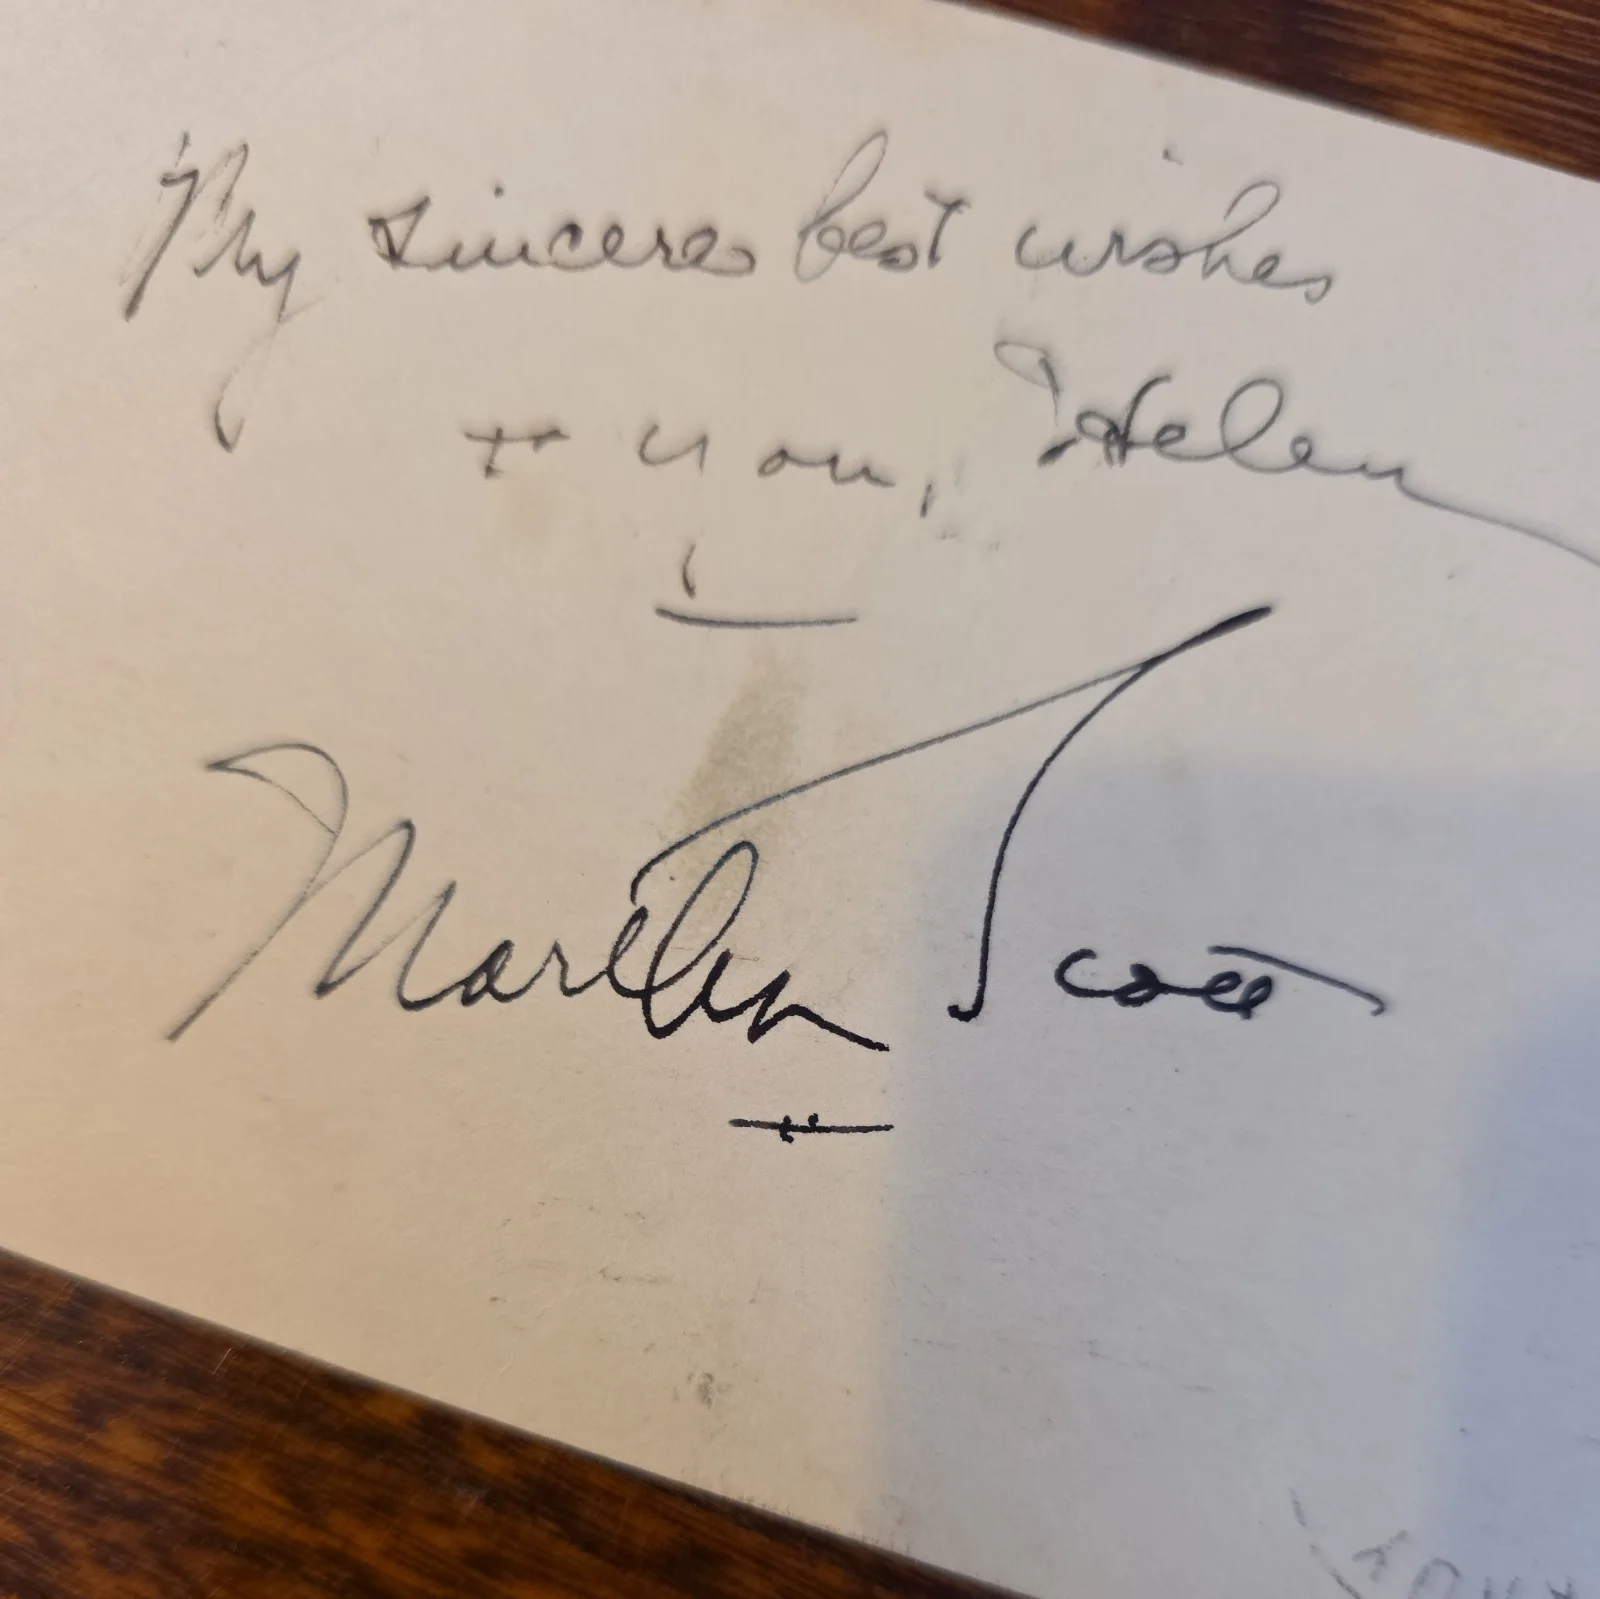 My sincere best wishes
to you, Helen
Marilyn Scott